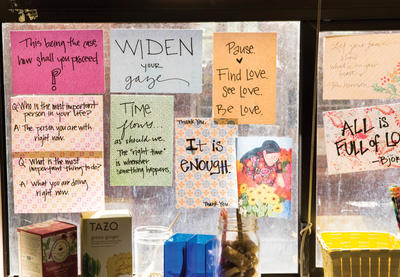 This being the case,
how shall you proceed
?
WIDEN
your
gaze
Pause.
Find Love.
See Love.
Be Love.
Q: Who is the most important
person in your life?
A: The person you are with
right now.
Q: What is the most
important thing to do?
A: What you are doing
right now.
TIME
flows...
as should we.
The "right time"
is whenever
something happens.
Thank You.
It is
ENOUGH.
Thank You.
ALL IS
FULL of LO
-Björ
TAZO
green ginger